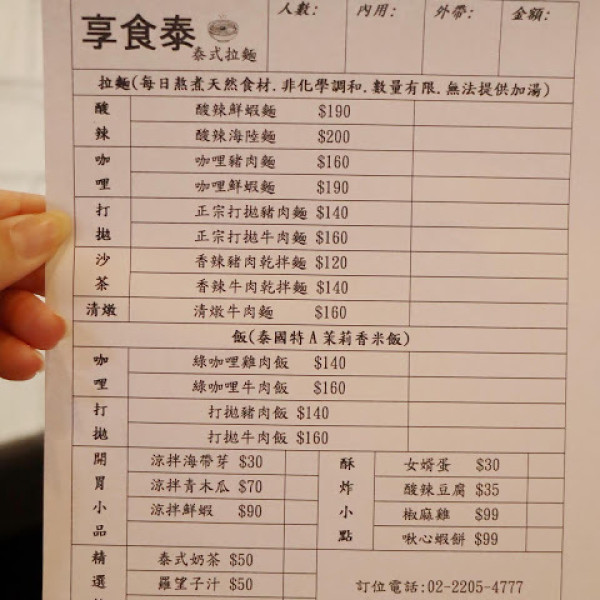 享食泰
泰式拉麵
人數: 內用: 外帶: 金額:
拉麵(每日熬煮天然食材.非化學調和.數量有限.無法提供加湯)
酸辣
酸辣鮮蝦麵 $190
酸辣海陸麵 $200
咖哩
咖哩豬肉麵 $160
咖哩鮮蝦麵 $190
打拋
正宗打拋豬肉麵 $140
正宗打拋牛肉麵 $160
沙茶
香辣豬肉乾拌麵 $120
香辣牛肉乾拌麵 $140
清燉
清燉牛肉麵 $160
飯(泰國特A茉莉香米飯)
咖哩
綠咖哩雞肉飯 $140
綠咖哩牛肉飯 $160
打拋
打拋豬肉飯 $140
打拋牛肉飯 $160
開胃小品
涼拌海帶芽 $30
涼拌青木瓜 $70
涼拌鮮蝦 $90
酥炸小點
女婿蛋 $30
酸辣豆腐 $35
椒麻雞 $99
啾心蝦餅 $99
精選
泰式奶茶 $50
羅望子汁 $50
訂位電話:02-2205-4777